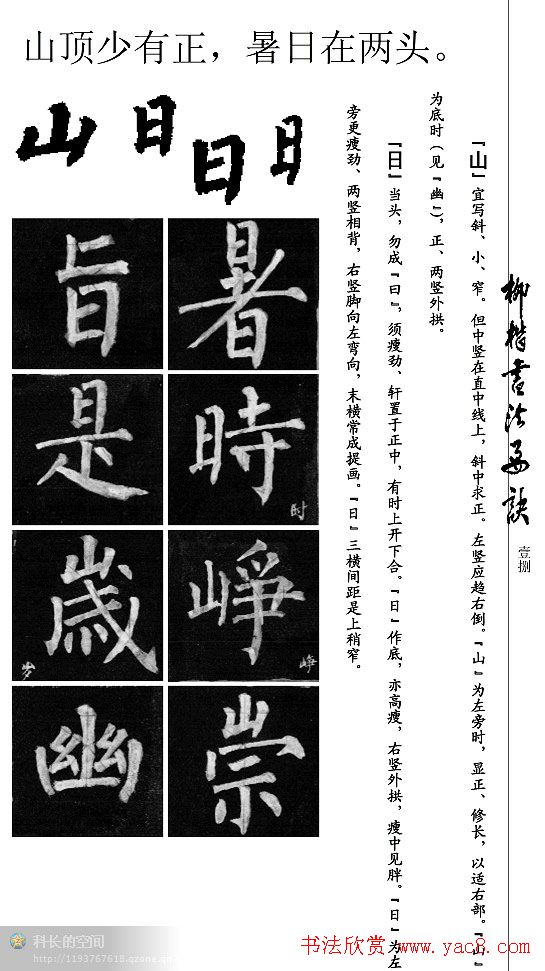 山顶少有正，暑日在两头。
山日日日
『山』宜写斜、小、窄。但中竖在直中线上，斜中求正。左竖应趋右倒。『山』为左旁时，显正、修长，以适右部。『山』
为底时（见『幽』），正、两竖外拱。
『日』当头，勿成『曰』，须瘦劲、轩置于正中，有时上开下合。『日』作底，亦高瘦，右竖外拱，瘦中见胖。『日』为左
旁更瘦劲、两竖相背，右竖脚向左弯向，末横常成提画。『日』三横间距是上稍窄。
柳楷书法要诀
壹捌
暑
旨
時
时
是
峥
峥
歲
岁
崇
幽
科长的空间
http://1193767618.qzone.qq.com
书法欣赏 www.yac8.com